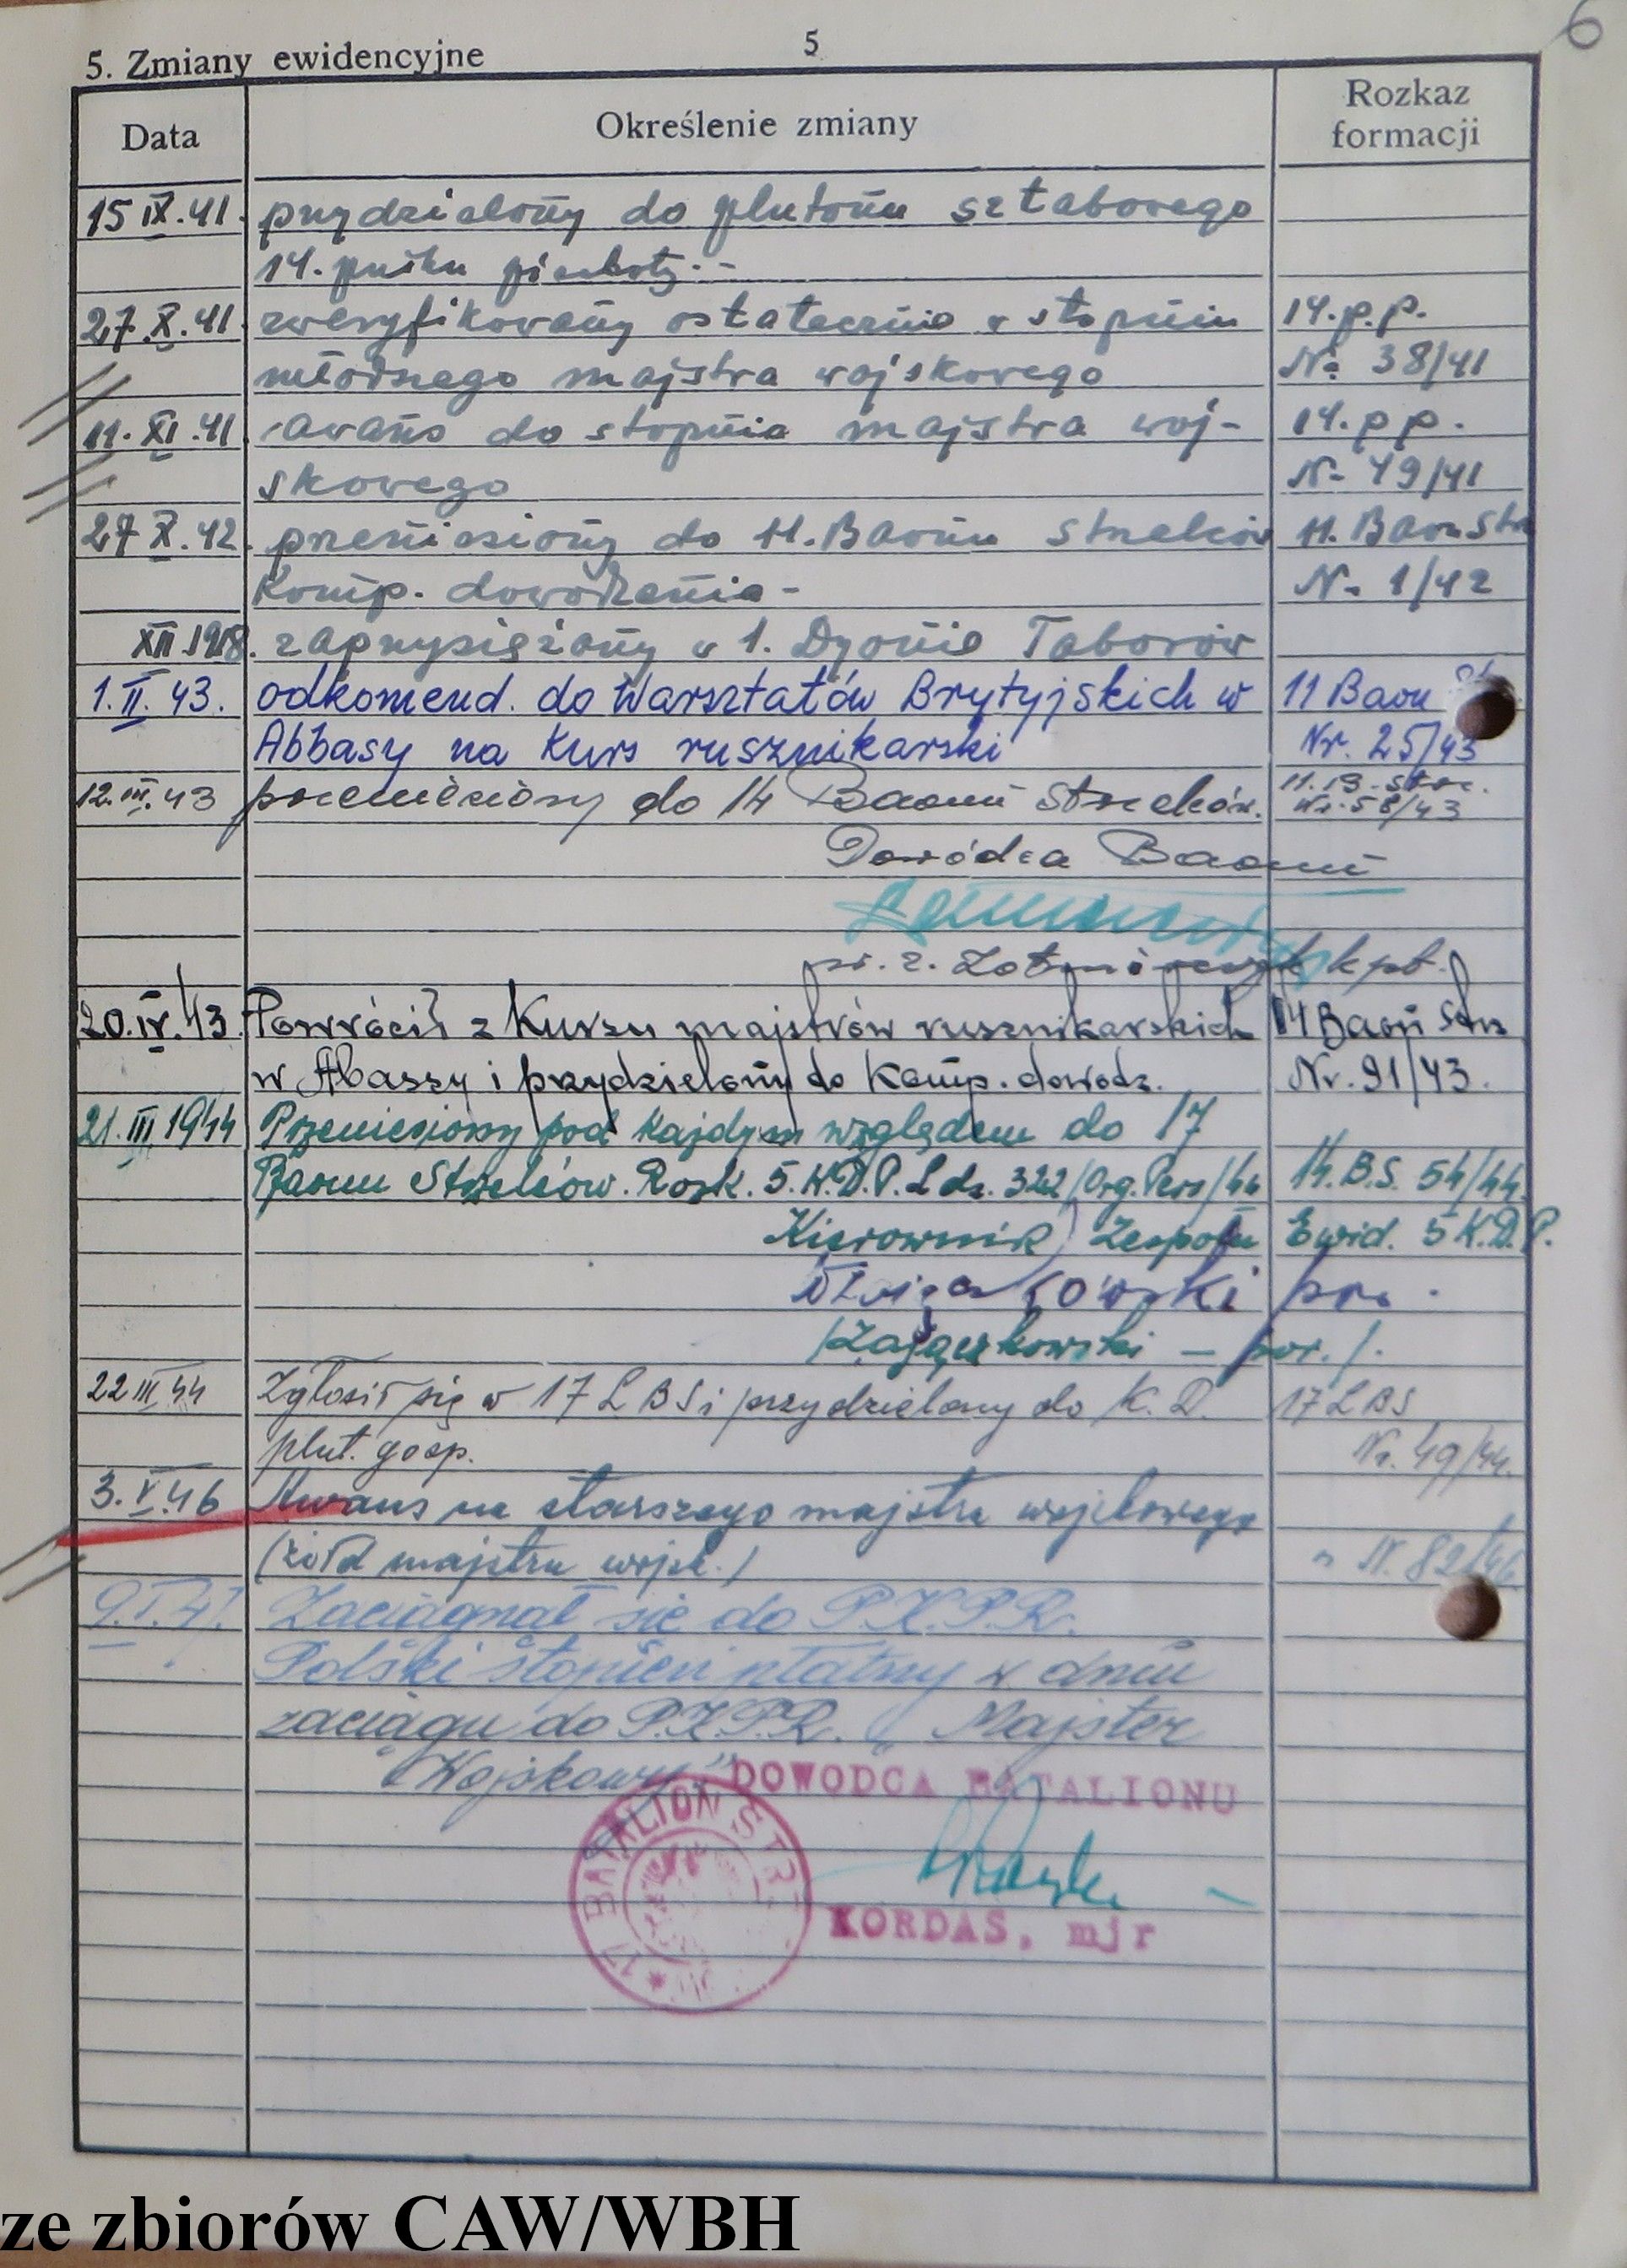 6
5. Zmiany ewidencyjne 5
Data Określenie zmiany Rozkaz formacji
15 IX.41. przydzielony do plutonu sztabowego
14. pułku piechoty.-
27.X.41. zweryfikowany ostatecznie w stopniu 14.p.p.
młodszego majstra wojskowego No 38/41
11.XI.41. awans do stopnia majstra woj- 14.p p.
skowego N- 49/41
27 X.42. przeniesiony do 11. Baonu Strzelców 11. Baon Strz
Komp. dowodzenia - N- 1/42
XII.1918. zaprzysiężony w 1. Dyonie Taborów
1.II.43. odkomend. do Warsztatów Brytyjskich w 11 Baon St
Abbasy na Kurs rusznikarski Nr. 25/43
12.III.43 przeniesiony do 14 Baonu Strzelców. 11.B.Strz. Nr.58/43
Dowódca Baonu
kpt.
20.IV.43. Powrócił z Kursu majstrów rusznikarskich 14 Baon Strz
w Abaszy i przydzielony do Komp. dowodz. Nr. 91/43.
21.III.1944 Przeniesiony pod każdym względem do 17
Baonu Strzelców. Rozk. 5.K.D.P. L.dz. 322/Org.Pers/44 14.B.S. 54/44.
Kierownik Zespołu Ewid. 5 K.D.P.
Zajączkowski por.
/Zajączkowski – por./.
22 III 44 Zgłosił się w 17 L B S i przydzielony do K. D. 17 L B S
plut. gosp. Nr. 49/44.
3.V.46 Awans na starszego majstra wojskowego
(żołd majstra wojsk.) " N. 82/46
9.I.47. Zaciągnął się do P.K.P.R.
Polski stopień płatny w dniu
zaciągu do P.K.P.R. „Majster
"Wojskowy"
DOWODCA BATALIONU
17 BATALION STRZ
KORDAS, mjr
ze zbiorów CAW/WBH